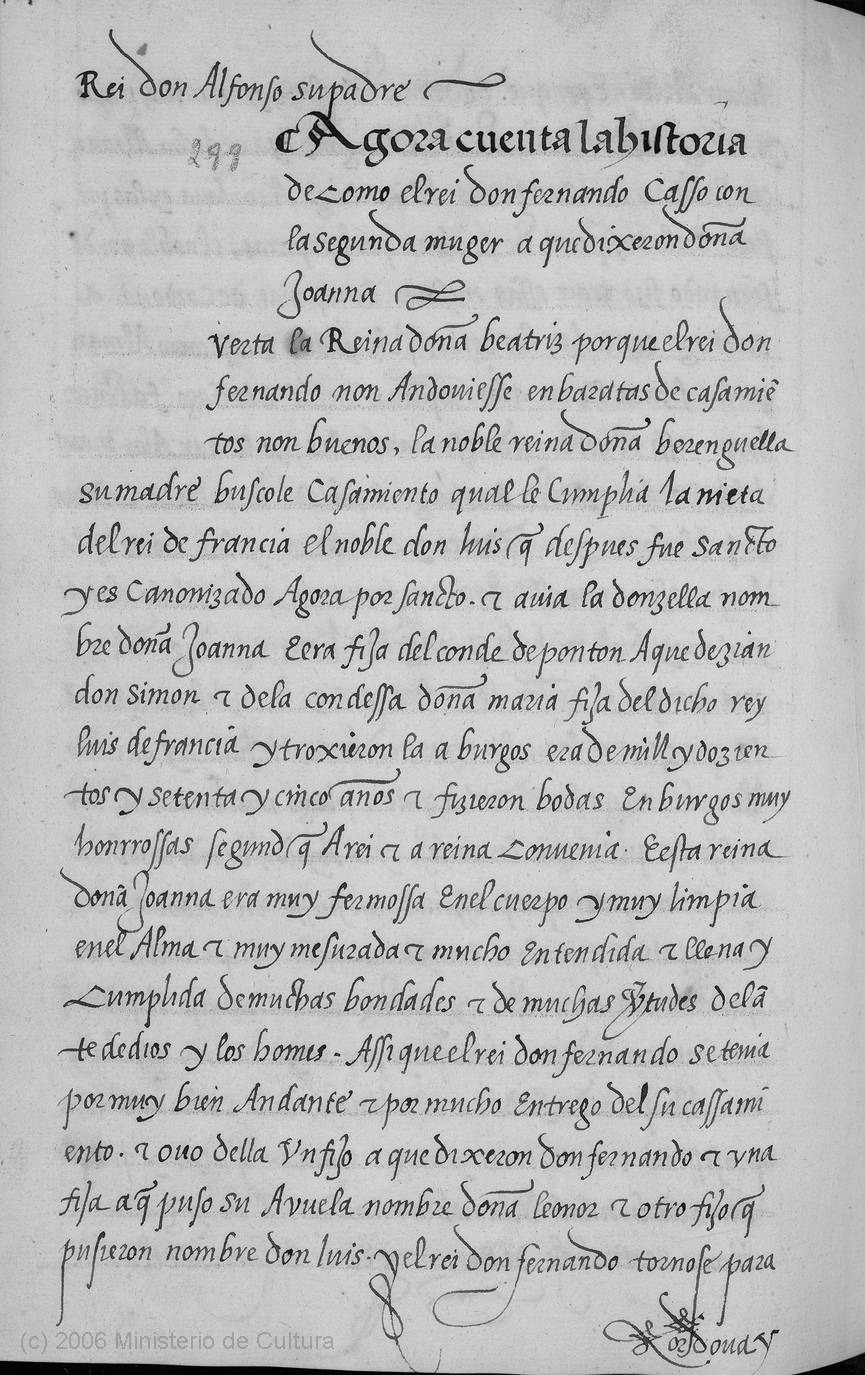 Rei don Alfonso su padre
299
Agora cuenta la historia
de como el rei don fernando Casso con
la segunda muger a que dixeron doña
Joanna
verta la Reina doña beatriz por que el rei don
fernando non Andoviesse en baratas de casamiē
tos non buenos, la noble reina doña berenguella
su madre buscole Casamiento qual le Cumplia la nieta
del rei de francia el noble don luis q̄ despues fue sancto
y es Canonizado Agora por sancto. τ avia la donzella nom
bre doña Joanna E era fija del conde de ponton A que dezian
don simon τ de la condessa doña maria fija del dicho rey
luis de francia y troxieron la a burgos era de mill y dozien
tos y setenta y cinco años τ fizieron bodas En burgos muy
honrrossas segund q̄ A rei τ a reina Convenia. E esta reina
doña Joanna era muy fermossa En el cuerpo y muy limpia
en el Alma τ muy mesurada τ mucho Entendida τ llena y
Cumplida de muchas bondades τ de muchas v̄tudes delā
te de dios y los homes. Assi que el rei don fernando se tenia
por muy bien Andante τ por mucho Entrego del su cassami
ento. τ ovo della Un fijo a que dixeron don fernando τ vna
fija a q̄ puso su Avuela nombre doña leonor τ otro fijo q̄
pusieron nombre don luis. y el rei don fernando tornose para
Cordova y
(c) 2006 Ministerio de Cultura